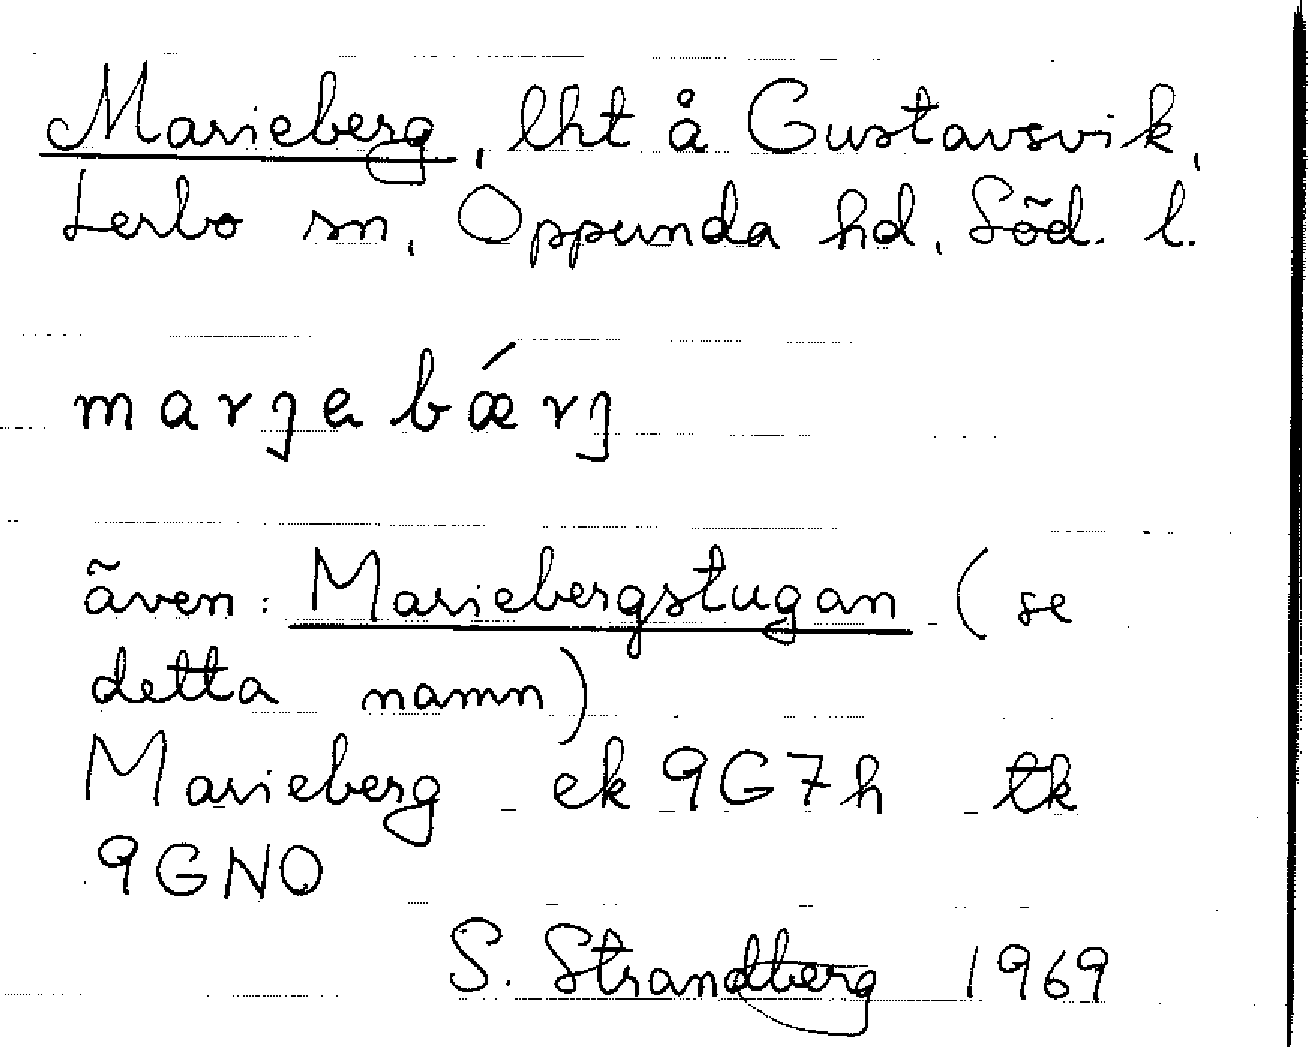 Marieberg, lht å Gustavsvik,
Lerbo sn, Oppunda hd, Söd. l.
marȷabǽrȷ
även: Mariebergstugan (se
detta namn)
Marieberg ek 9G7h tk
9GNO
S. Strandberg 1969